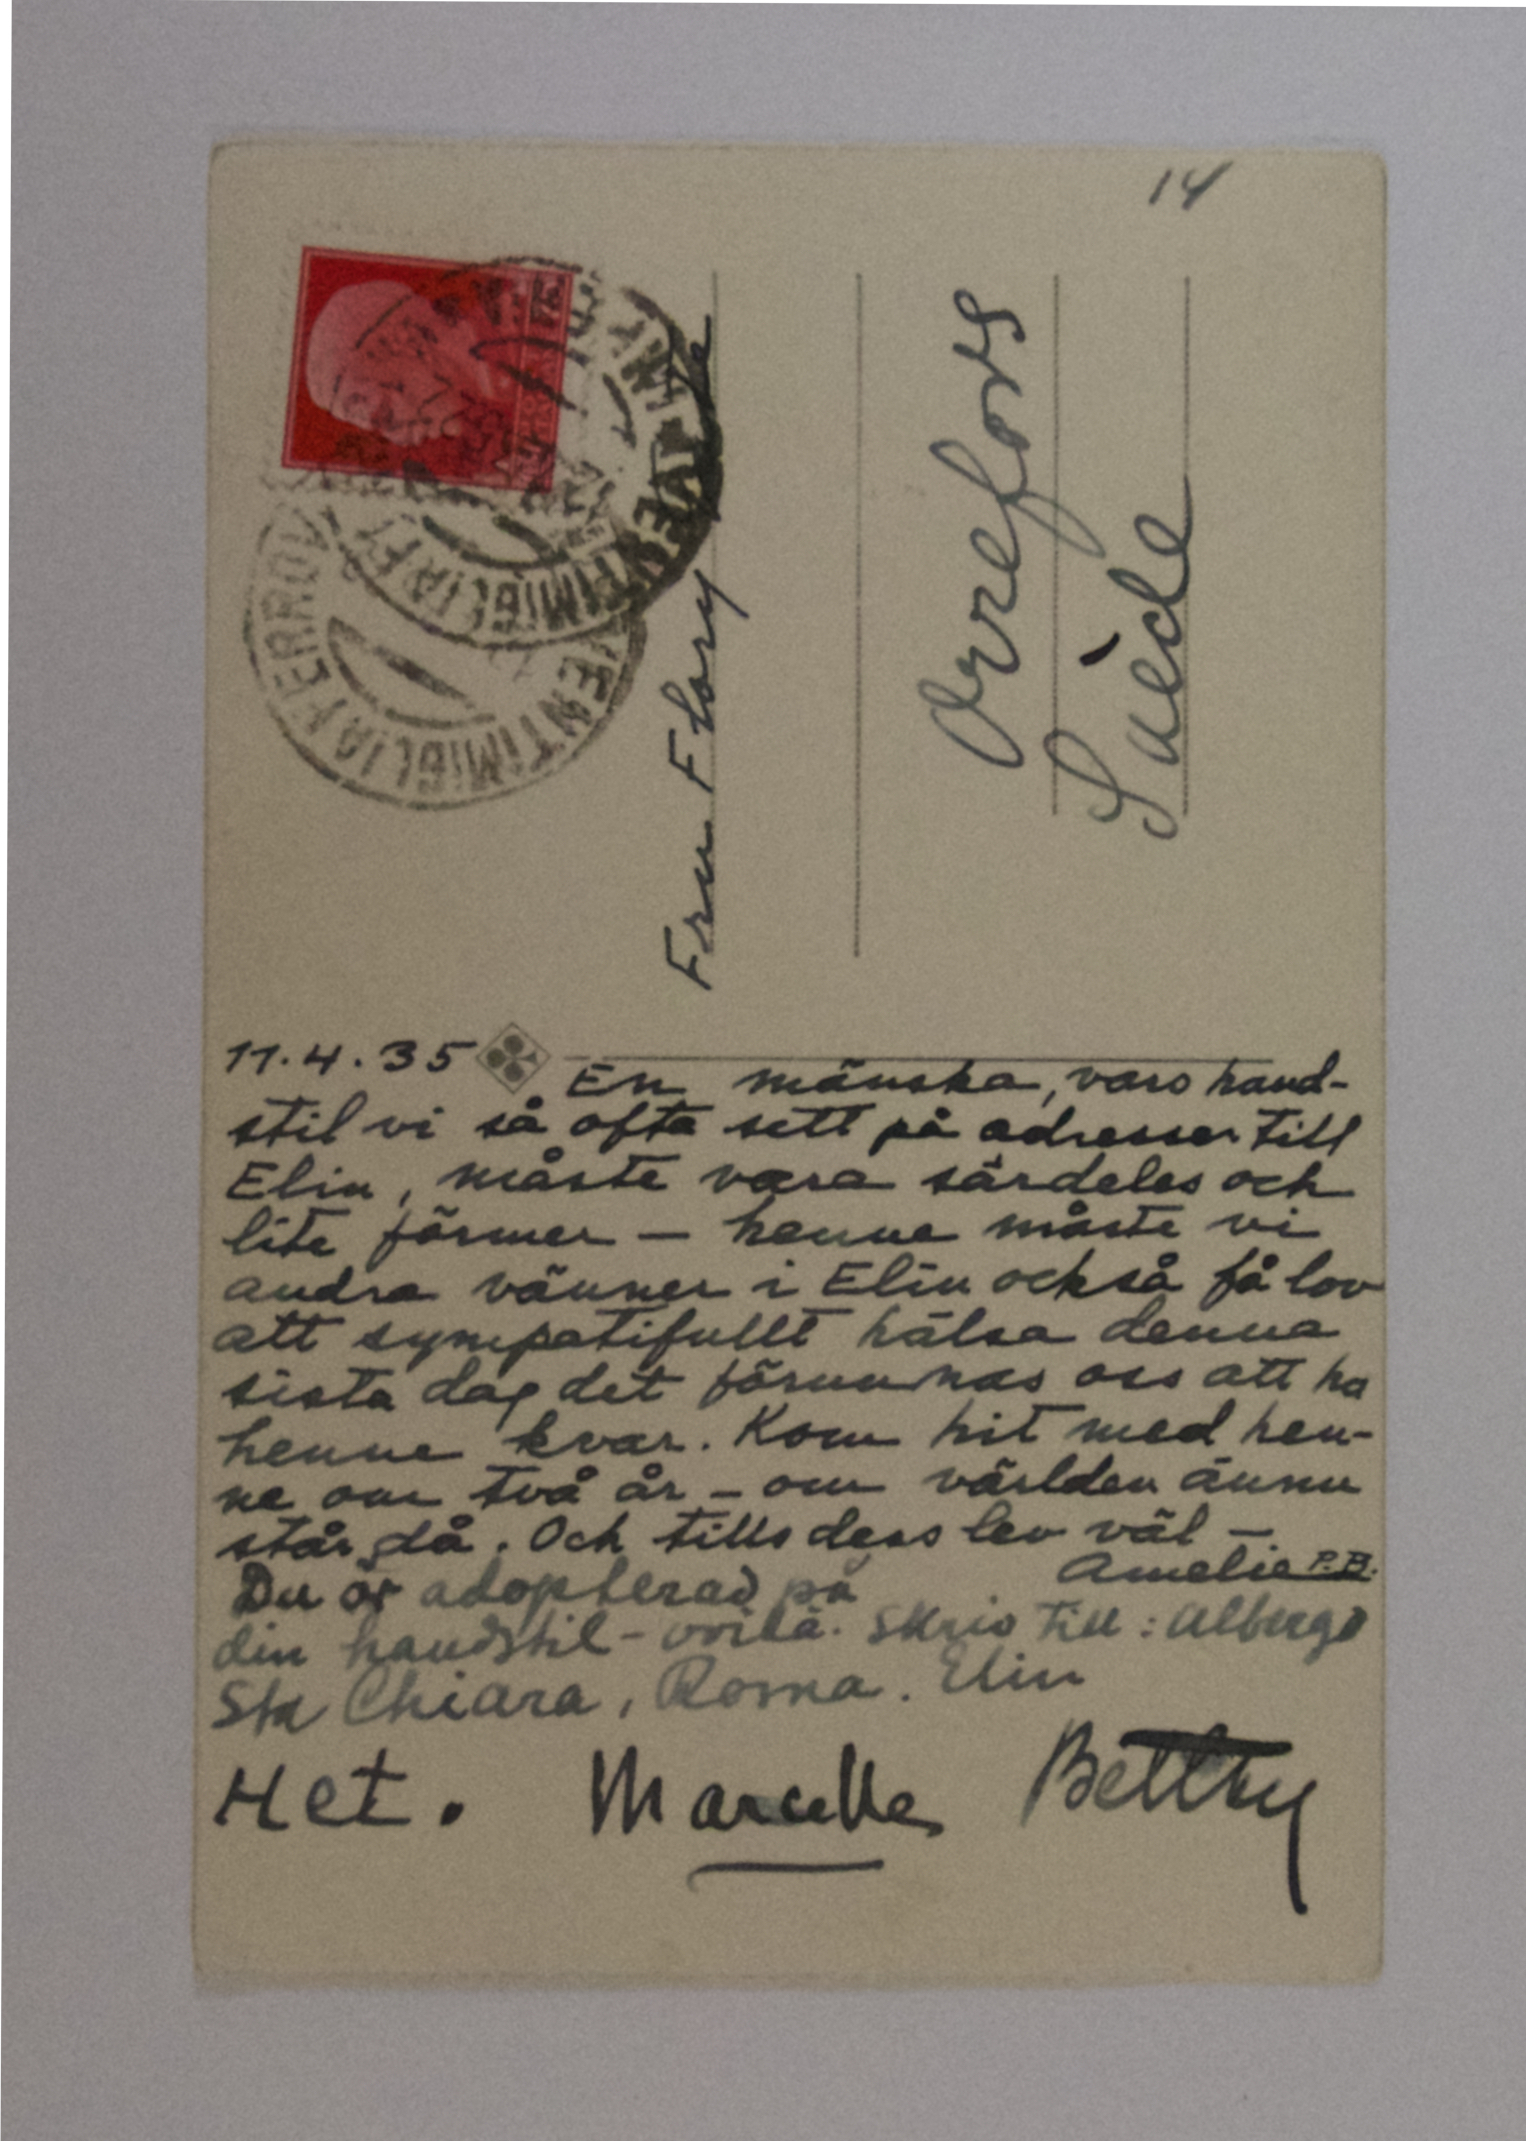 14
VENTIMIGLIA FERROV
VENTIMIGLIA FERROV
Fru Flory
Orrefors
Suède
11.4.35
En mänska, vars hand-
stil vi så ofta sett på adresser till
Elin, måste vara särdeles och
lite förmer – henne måste vi
andra vänner i Elin också få lov
att sympatifullt hälsa denna
sista dag det förunnas oss att ha
henne kvar. Kom hit med hen-
ne om två år – om världen ännu
står då. Och tills dess lev väl –
Amelie P.B.
Du är adopterad på
din handstil – voilà. Skriv till: Albergo
Sta Chiara, Roma. Elin
Het. Marcelle Bettty